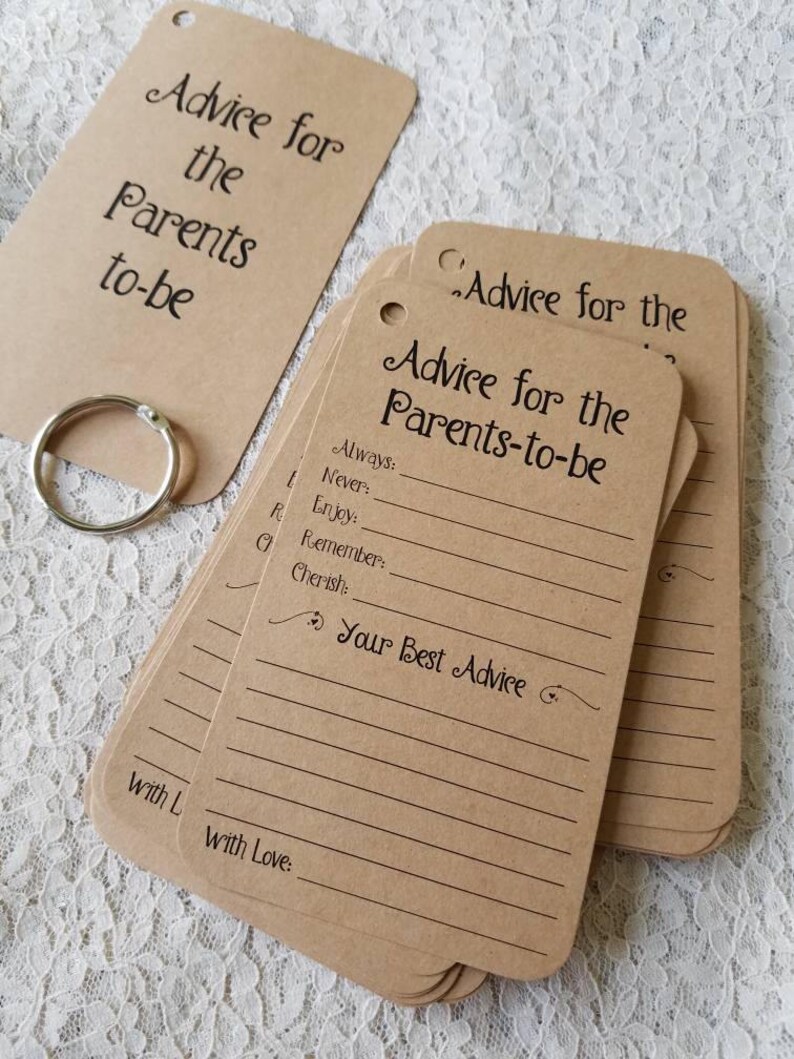 Advice for
the
Parents
to-be
Advice for the
Advice for the
Parents-to-be
Always:
Never:
Enjoy:
Remember:
Cherish:
Your Best Advice
With Love:
With L